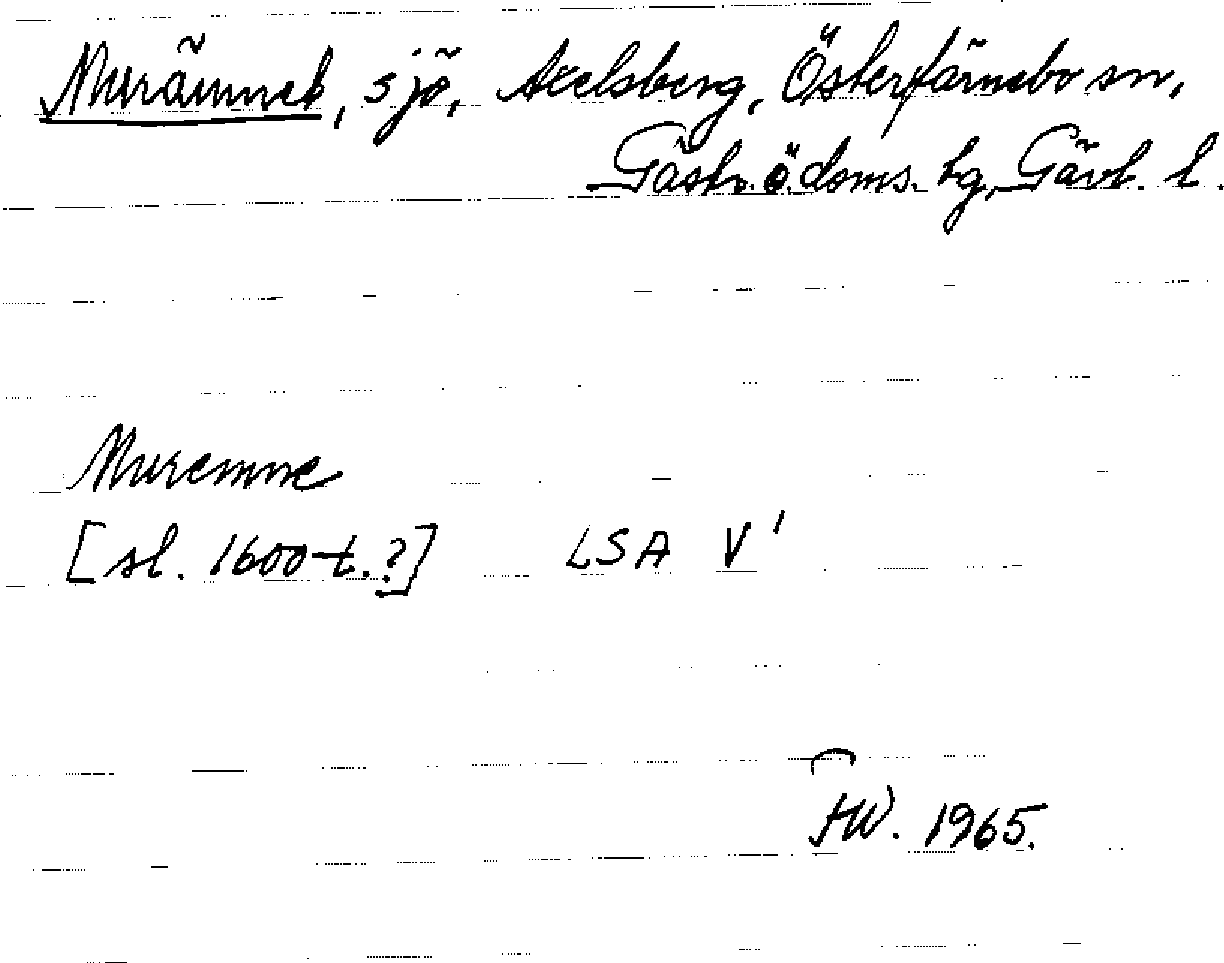 Murämnet, sjö, Axelsberg, Österfärnebo sn,
Gästr. ö. doms. tg, Gävl. l.
Muremne
[sl. 1600-t.?] LSA V¹
FW. 1965.